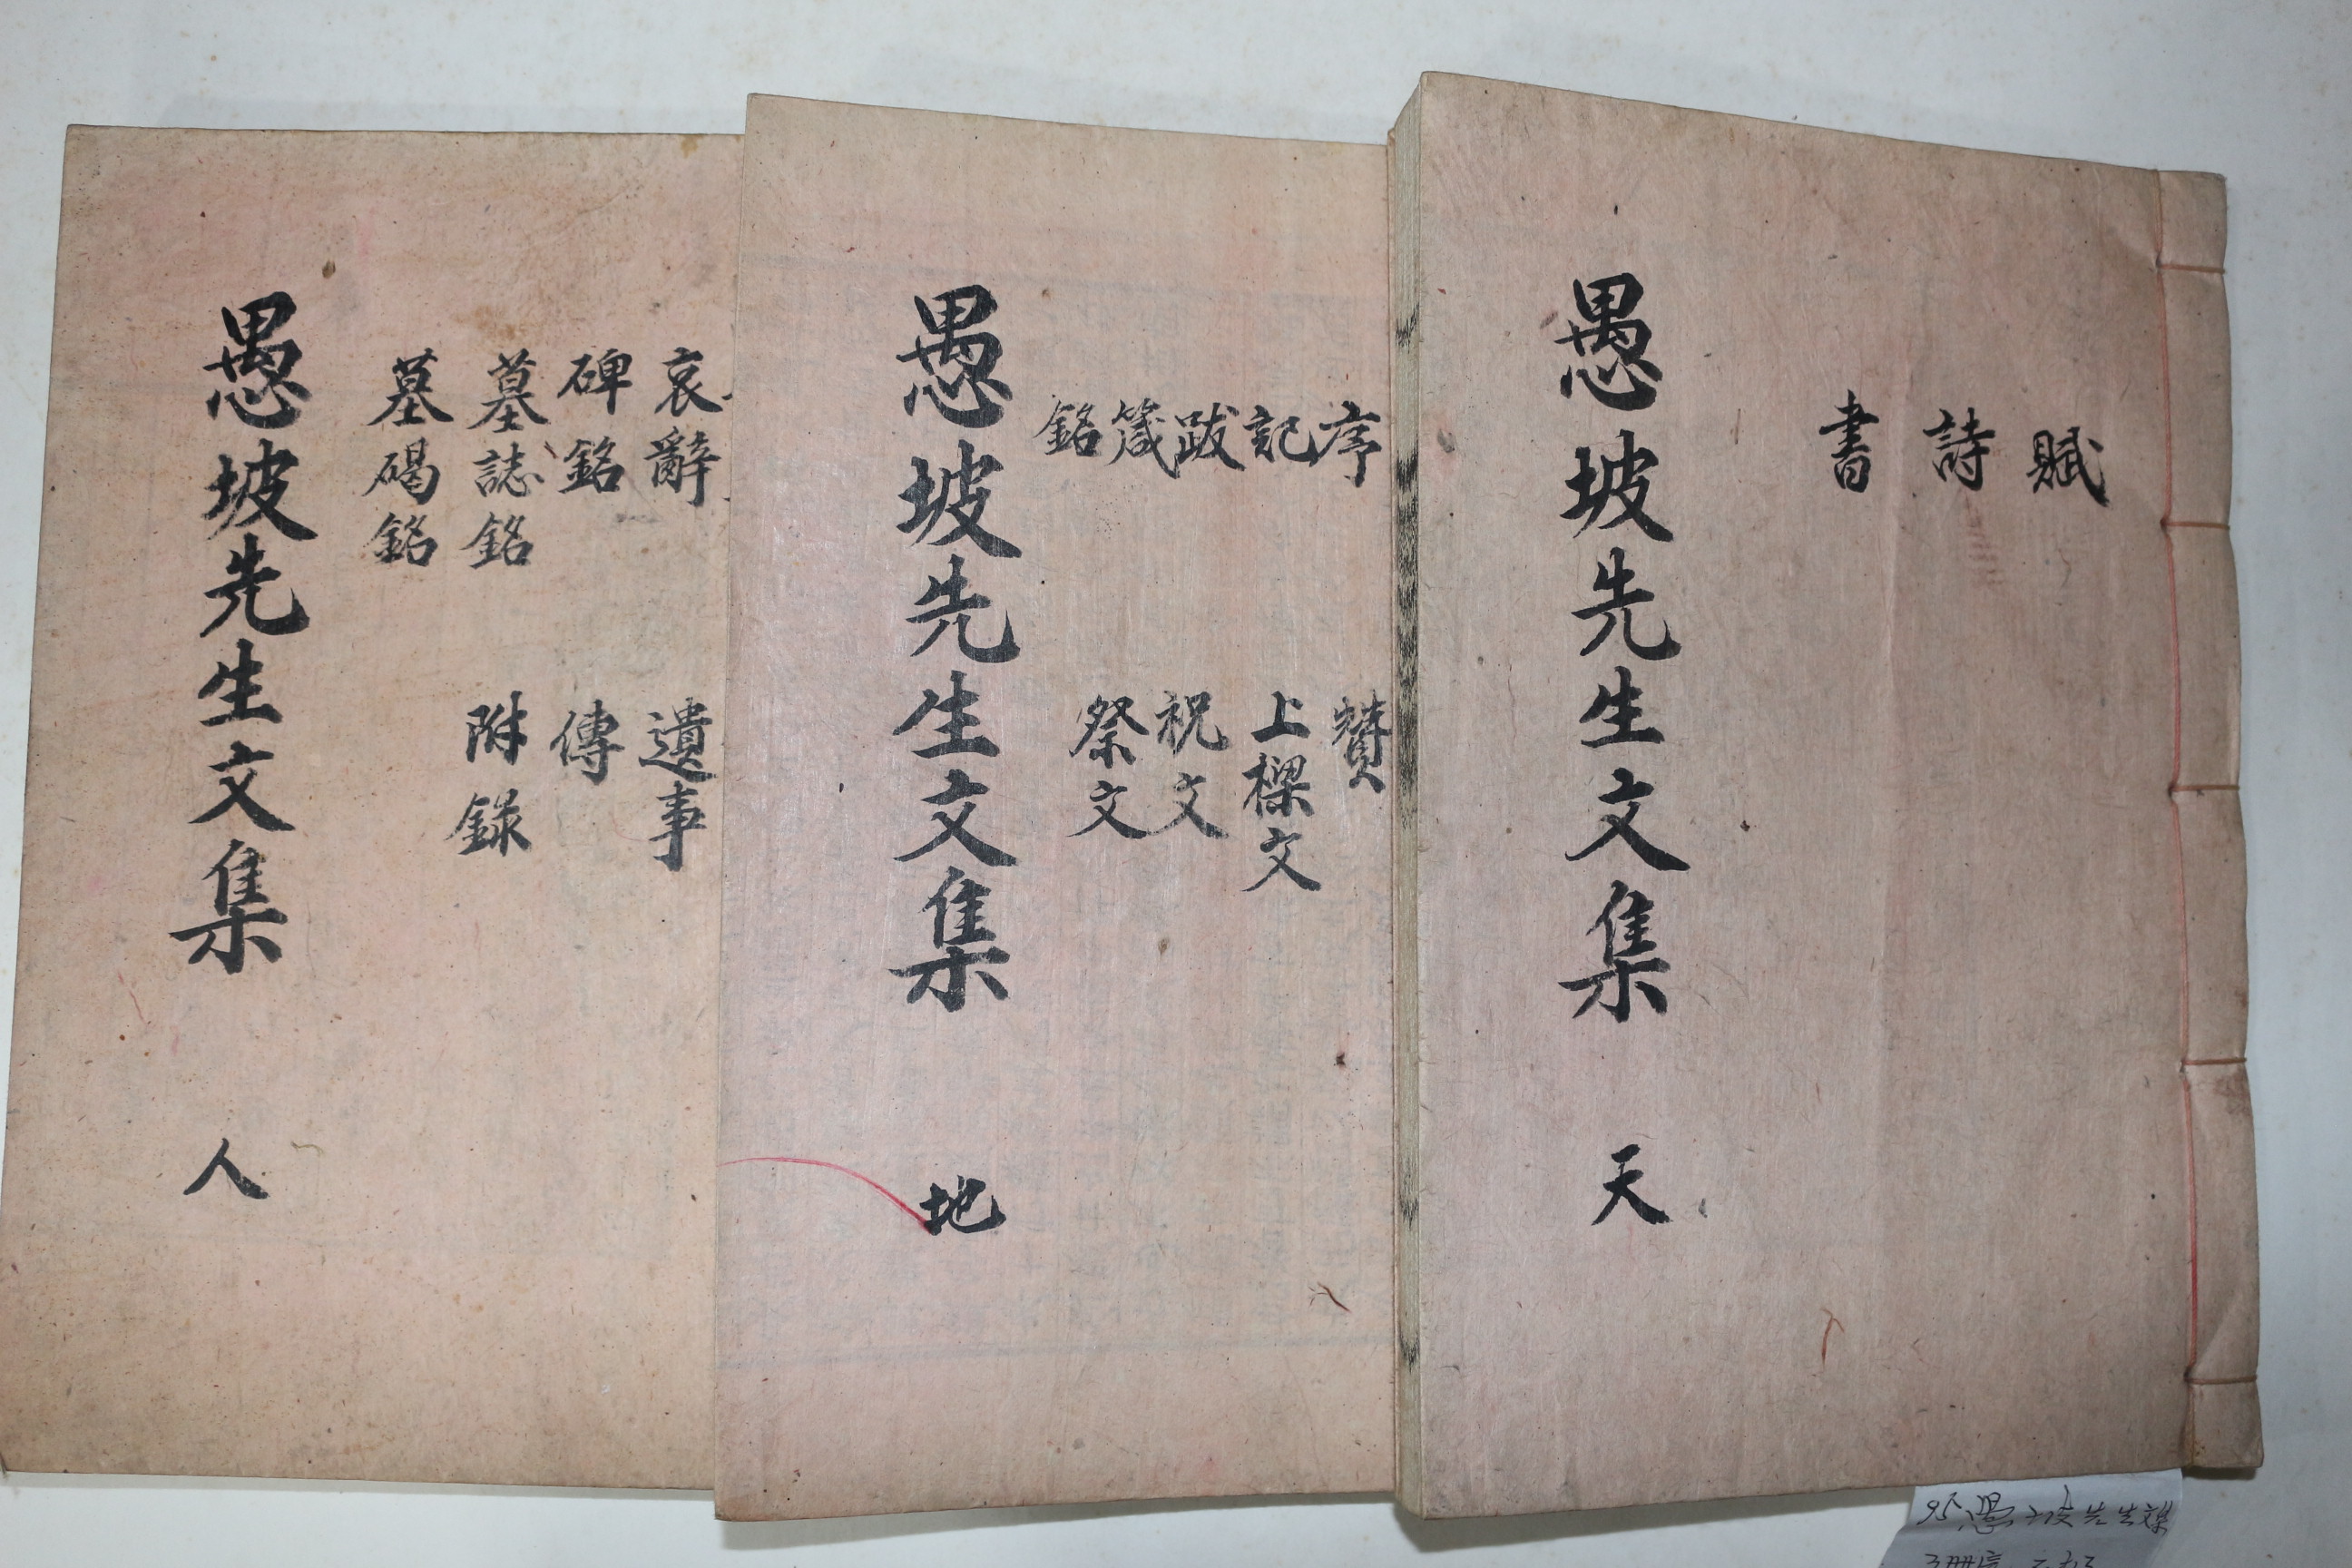 賦
詩
書
愚坡先生文集 天
序
記
跋
箴
銘
贊
上樑文
祝文
祭文
愚坡先生文集 地
哀辭
碑銘
墓誌銘
墓碣銘
遺事
傳
附錄
愚坡先生文集 人